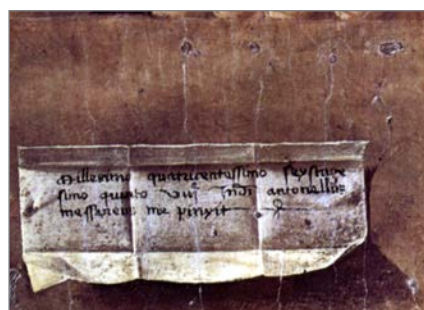 Millesimo quatricentessimo sexstage
simo quinto viij indi antonellus
messaneus me pinxit